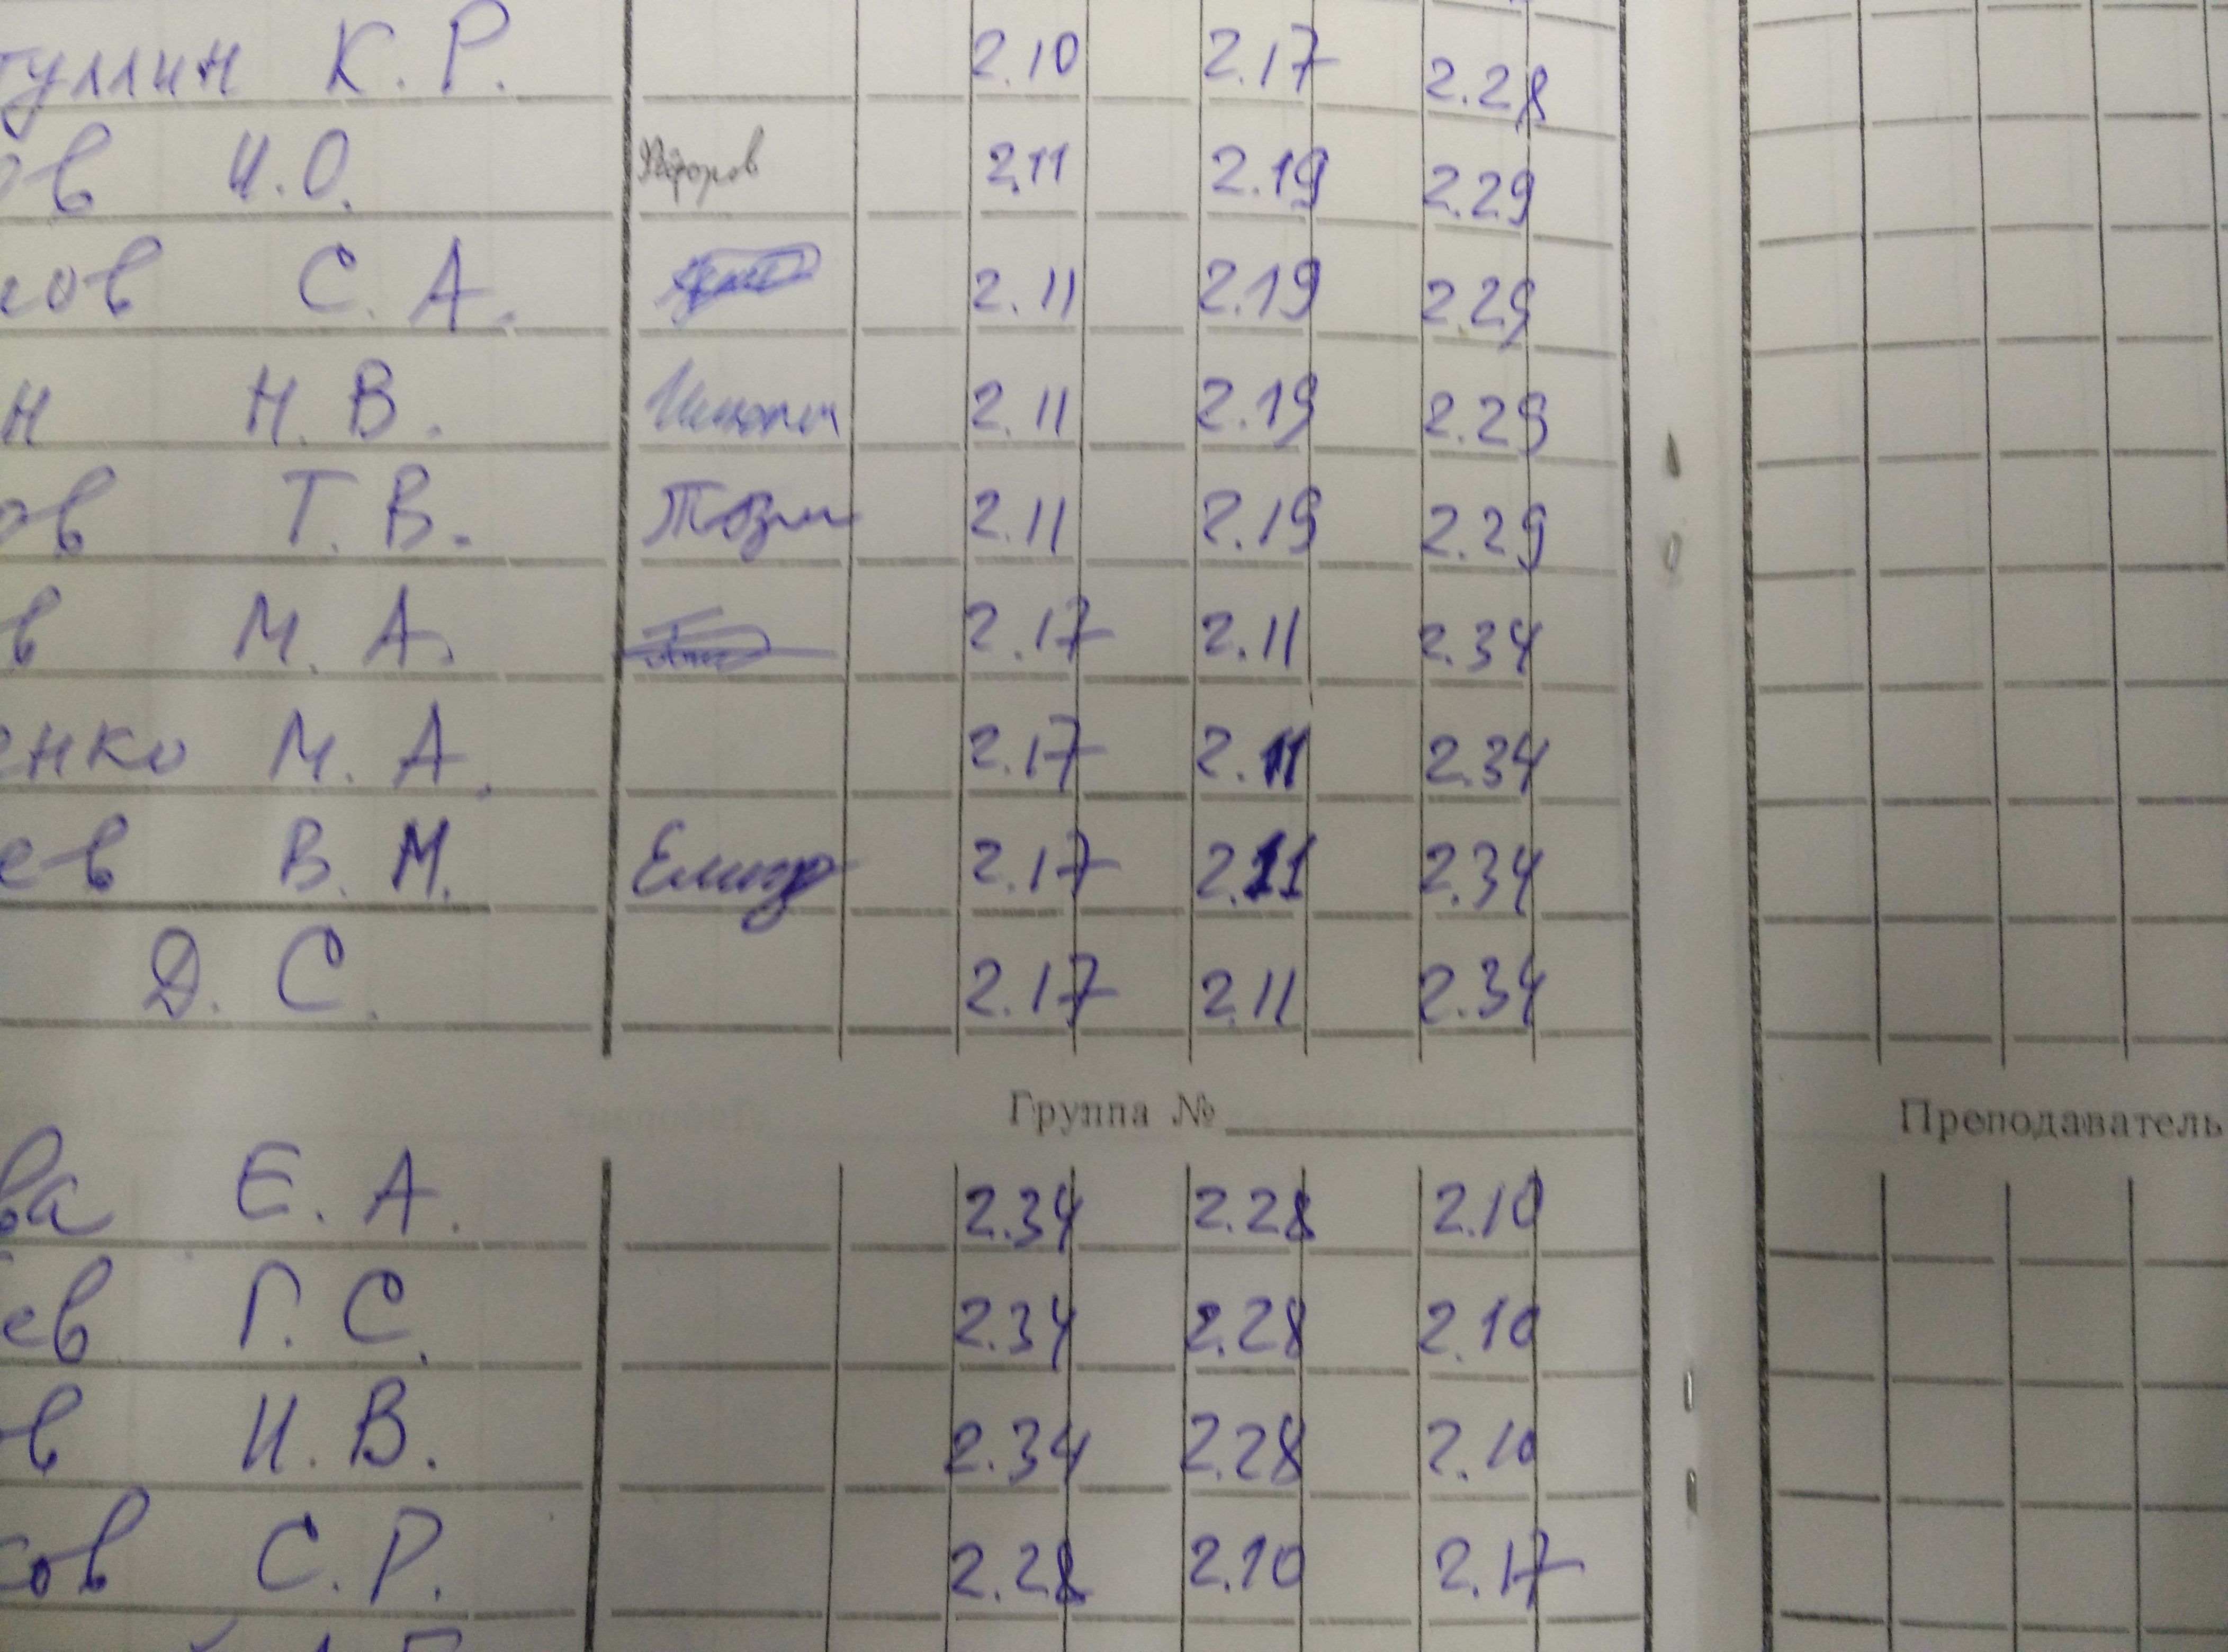 туллин К. Р. 2.10 2.17 2.28
ов И.О. 2.11 2.19 2.29
сов С. А. 2.11 2.19 2.29
н Н. В. 2.11 2.19 2.29
ов Т. В. 2.11 2.19 2.29
в М. А. 2.17 2.11 2.34
енко М. А. 2.17 2.11 2.34
ев В. М. 2.17 2.11 2.34
Д. С. 2.17 2.11 2.34
Группа № Преподаватель
ва Е. А. 2.34 2.28 2.10
ев Г. С. 2.34 2.28 2.10
ов И. В. 2.34 2.28 2.10
сов С. Р. 2.28 2.10 2.17